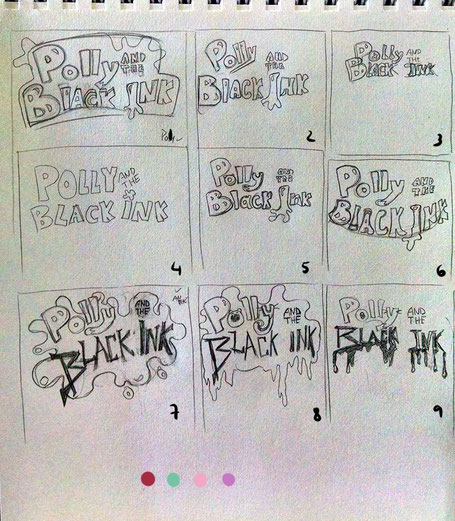 Polly
AND THE
BLACK INK
1
Polly
AND THE
BLACK INK
2
Polly
AND THE
BLACK INK
3
POLLY
AND THE
BLACK INK
4
Polly
AND THE
BLACK Ink
5
Polly
AND THE
BLACK INK
6
Polly
AND THE
BLACK INK
7
Polly
AND THE
BLACK INK
8
Polly
AND THE
BLACK INK
9